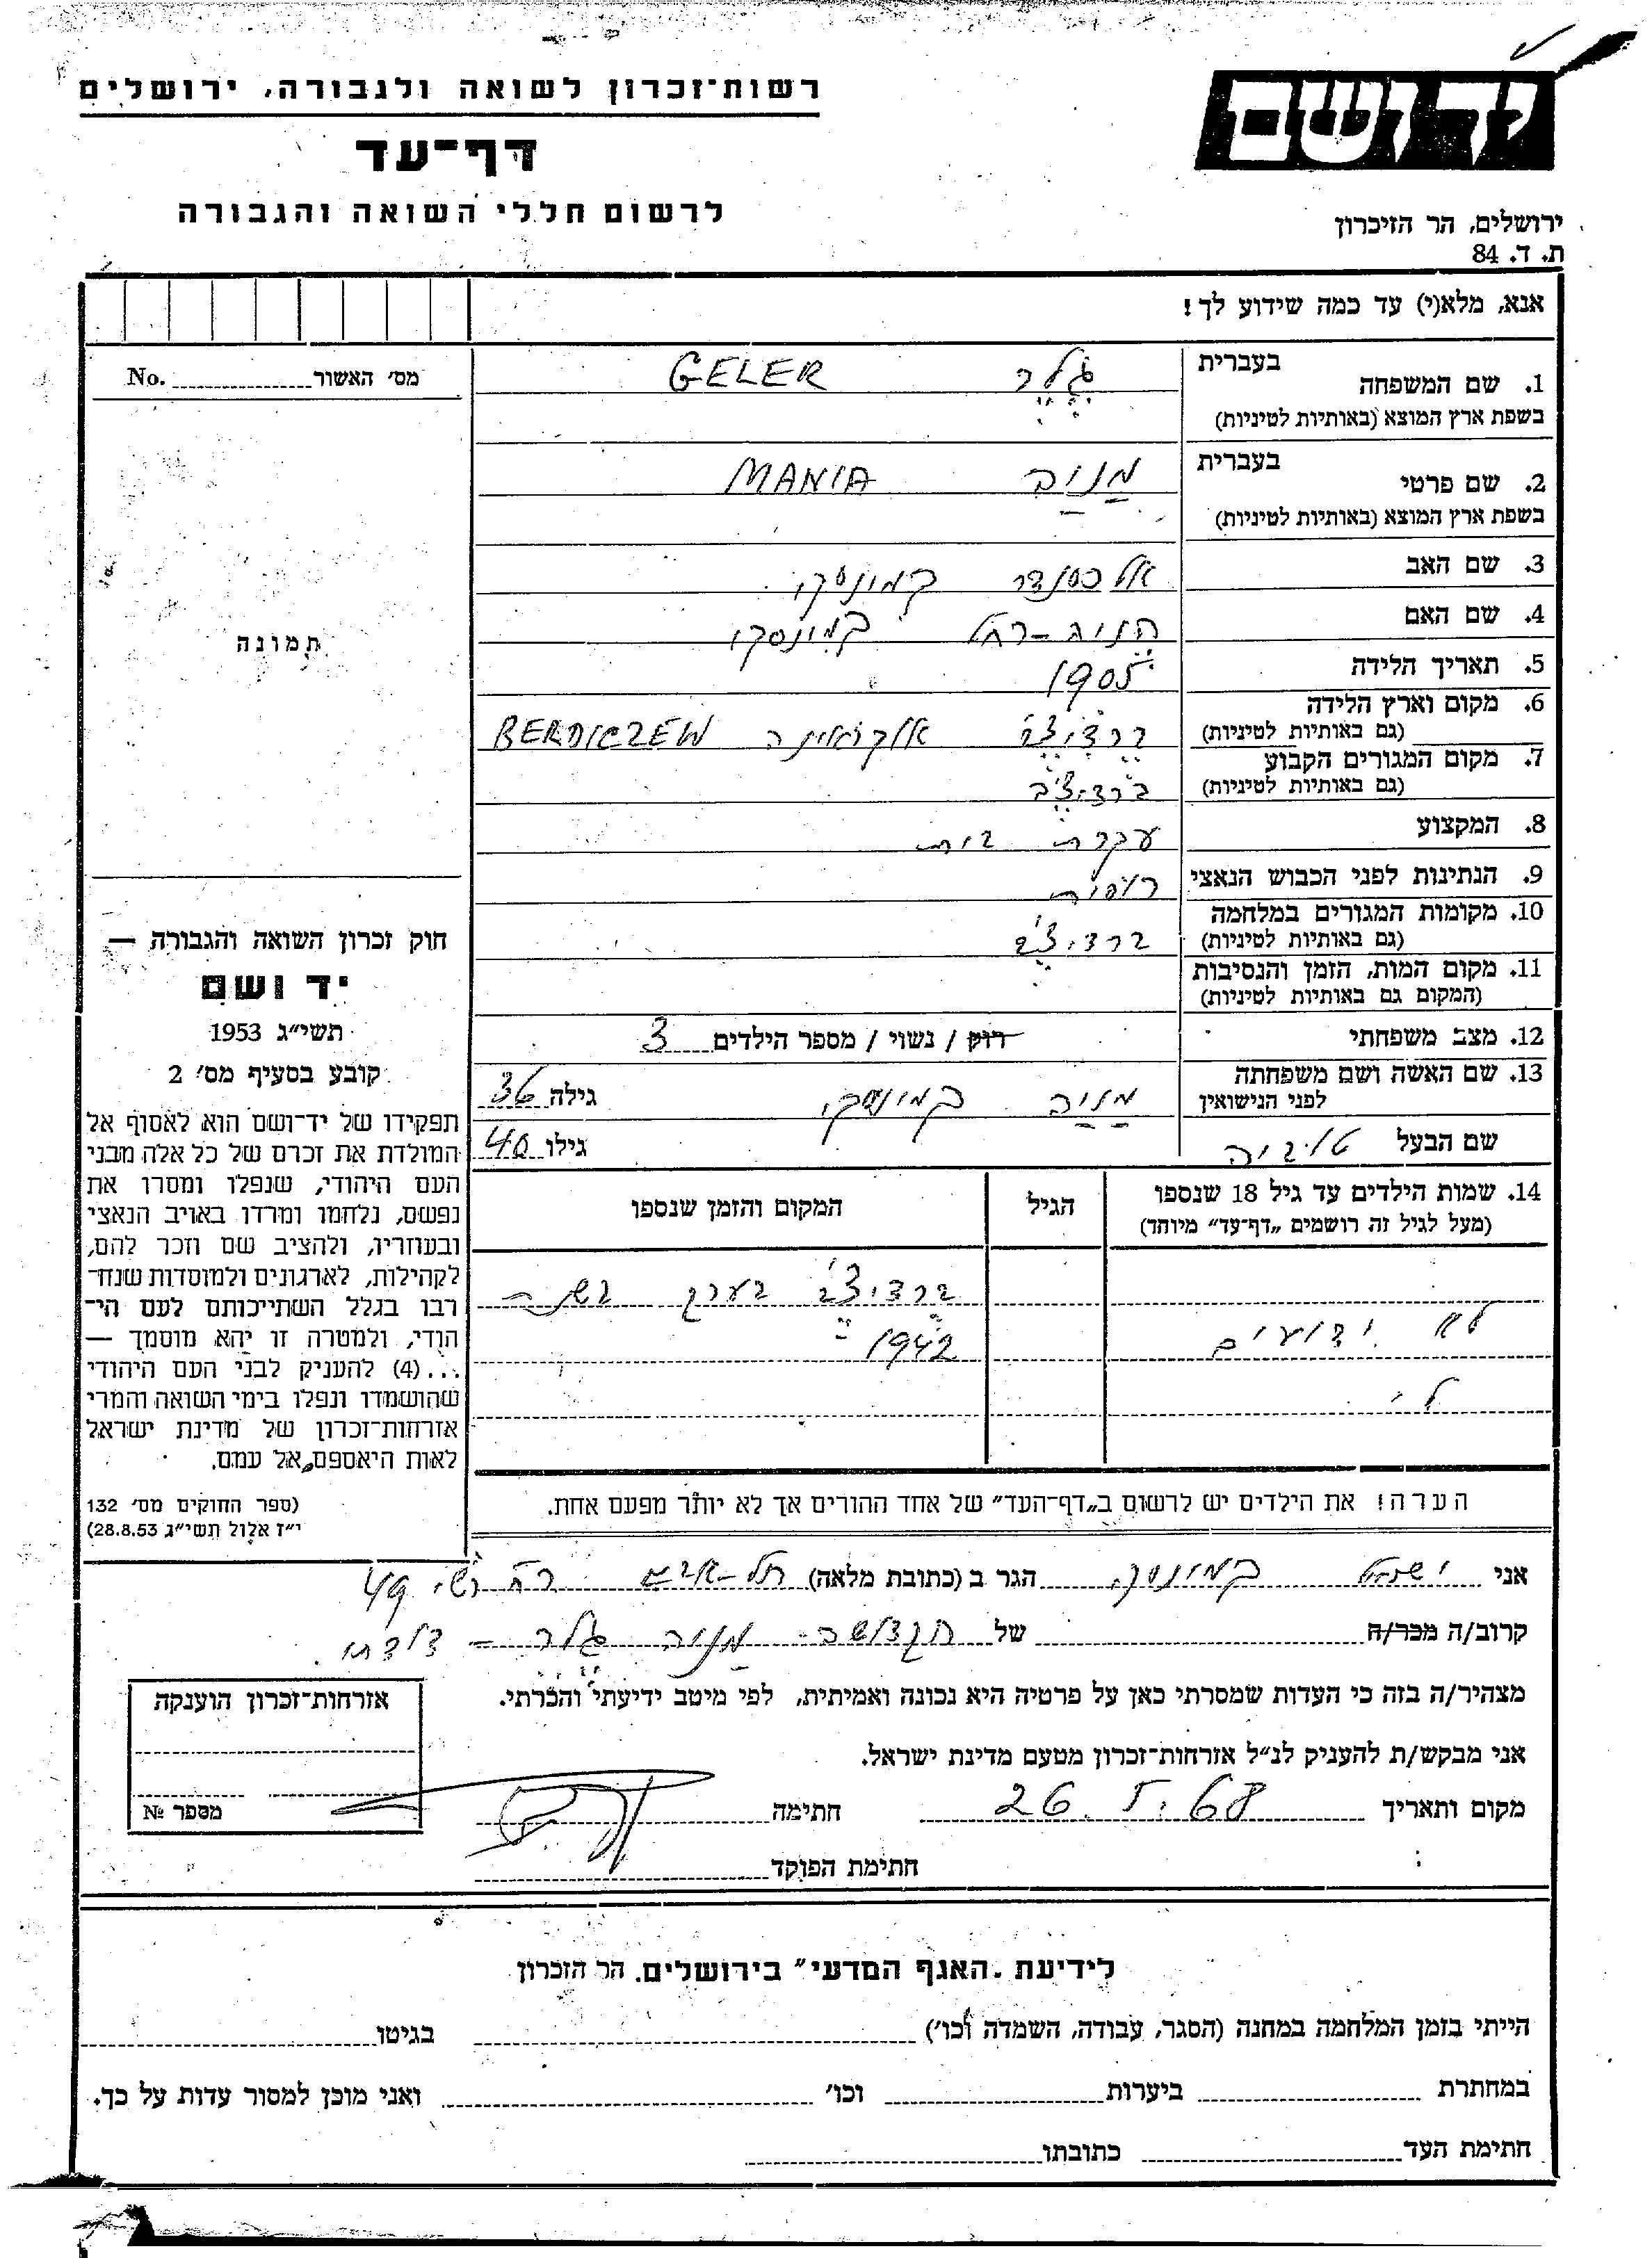 יד ושם
רשות־זכרון לשואה ולגבורה, ירושלים
דף־עד
לרשום חללי השואה והגבורה
ירושלים, הר הזיכרון
ת. ד. 84
אנא, מלא(י) עד כמה שידוע לך!
מס׳ האשור No.
תמונה
1. שם המשפחה בעברית גלר GELER
בשפת ארץ המוצא (באותיות לטיניות)
2. שם פרטי בעברית מניה MANIA
בשפת ארץ המוצא (באותיות לטיניות)
3. שם האב אלכסנדר קמינסקי
4. שם האם חניה-רחל קמינסקי
5. תאריך הלידה 1905
6. מקום וארץ הלידה ברדיצ׳ב אוקראינה BERDICZEW
(גם באותיות לטיניות)
7. מקום המגורים הקבוע ברדיצ׳ב
(גם באותיות לטיניות)
8. המקצוע עקרת בית
9. הנתינות לפני הכבוש הנאצי רוסית
10. מקומות המגורים במלחמה ברדיצ׳ב
(גם באותיות לטיניות)
11. מקום המות, הזמן והנסיבות
(המקום גם באותיות לטיניות)
12. מצב משפחתי רוק / נשוי / מספר הילדים 3
13. שם האשה ושם משפחתה מניה קמינסקי גילה 36
לפני הנישואין
שם הבעל טוביה גילו 40
14. שמות הילדים עד גיל 18 שנספו הגיל המקום והזמן שנספו
(מעל לגיל זה רושמים „דף־עד״ מיוחד)
ברדיצ׳ב בערך בשנה
לא ידועים 1942
לי
הערה! את הילדים יש לרשום ב„דף־העד״ של אחד ההורים אך לא יותר מפעם אחת.
חוק זכרון השואה והגבורה —
יד ושם
תשי״ג 1953
קובע בסעיף מס׳ 2
תפקידו של יד־ושם הוא לאסוף אל
המולדת את זכרם של כל אלה מבני
העם היהודי, שנפלו ומסרו את
נפשם, נלחמו ומרדו באויב הנאצי
ובעוזריו, ולהציב שם וזכר להם,
לקהילות, לארגונים ולמוסדות שנח־
רבו בגלל השתייכותם לעם הי־
הודי, ולמטרה זו יהא מוסמך —
...(4) להעניק לבני העם היהודי
שהושמדו ונפלו בימי השואה והמרי
אזרחות־זכרון של מדינת ישראל
לאות היאספם אל עמם.
(ספר החוקים מס׳ 132
י״ז אלול תשי״ג 28.8.53)
אני ישראל קמינסקי הגר ב (כתובת מלאה) תל-אביב רח׳ רש״י 49
קרוב/ה מכר/ה של מניה גלר - דודתי
מצהיר/ה בזה כי העדות שמסרתי כאן על פרטיה היא נכונה ואמיתית, לפי מיטב ידיעתי והכרתי.
אני מבקש/ת להעניק לנ״ל אזרחות־זכרון מטעם מדינת ישראל.
מקום ותאריך 26.5.68 חתימה
חתימת הפוקד
אזרחות־זכרון הוענקה
מספר №
לידיעת „האגף המדעי״ בירושלים. הר הזכרון
הייתי בזמן המלחמה במחנה (הסגר, עבודה, השמדה וכו׳) בגיטו
במחתרת ביערות וכו׳ ואני מוכן למסור עדות על כך.
חתימת העד כתובתו